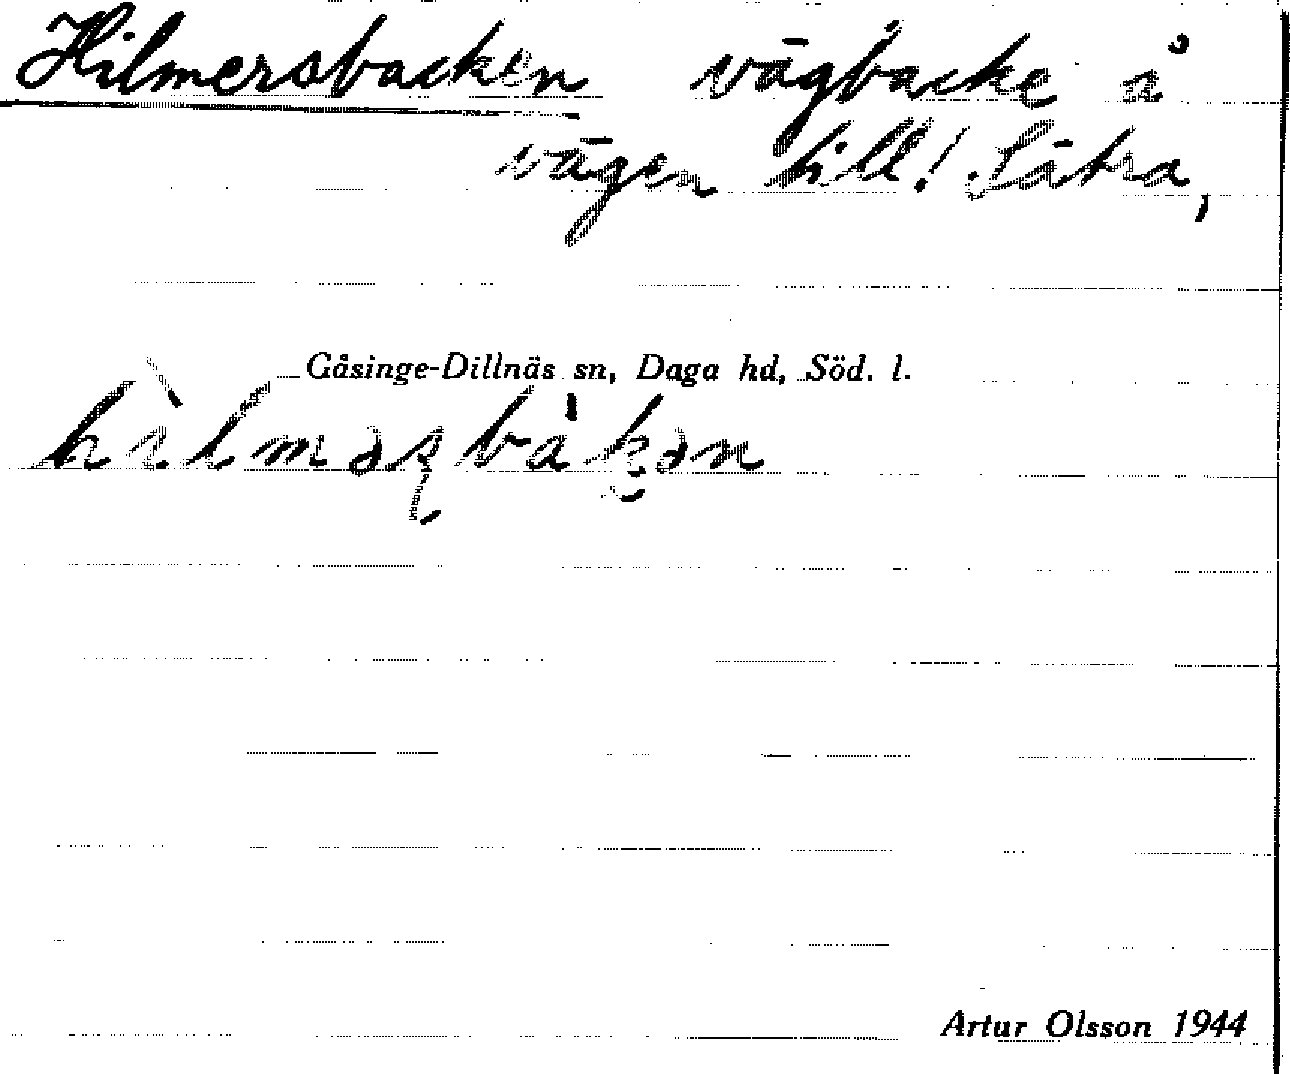 Hilmersbacken vägbacke å
vägen till! Sätra,
Gåsinge-Dillnäs sn, Daga hd, Söd. l.
hìlməʂbàkən
Artur Olsson 1944